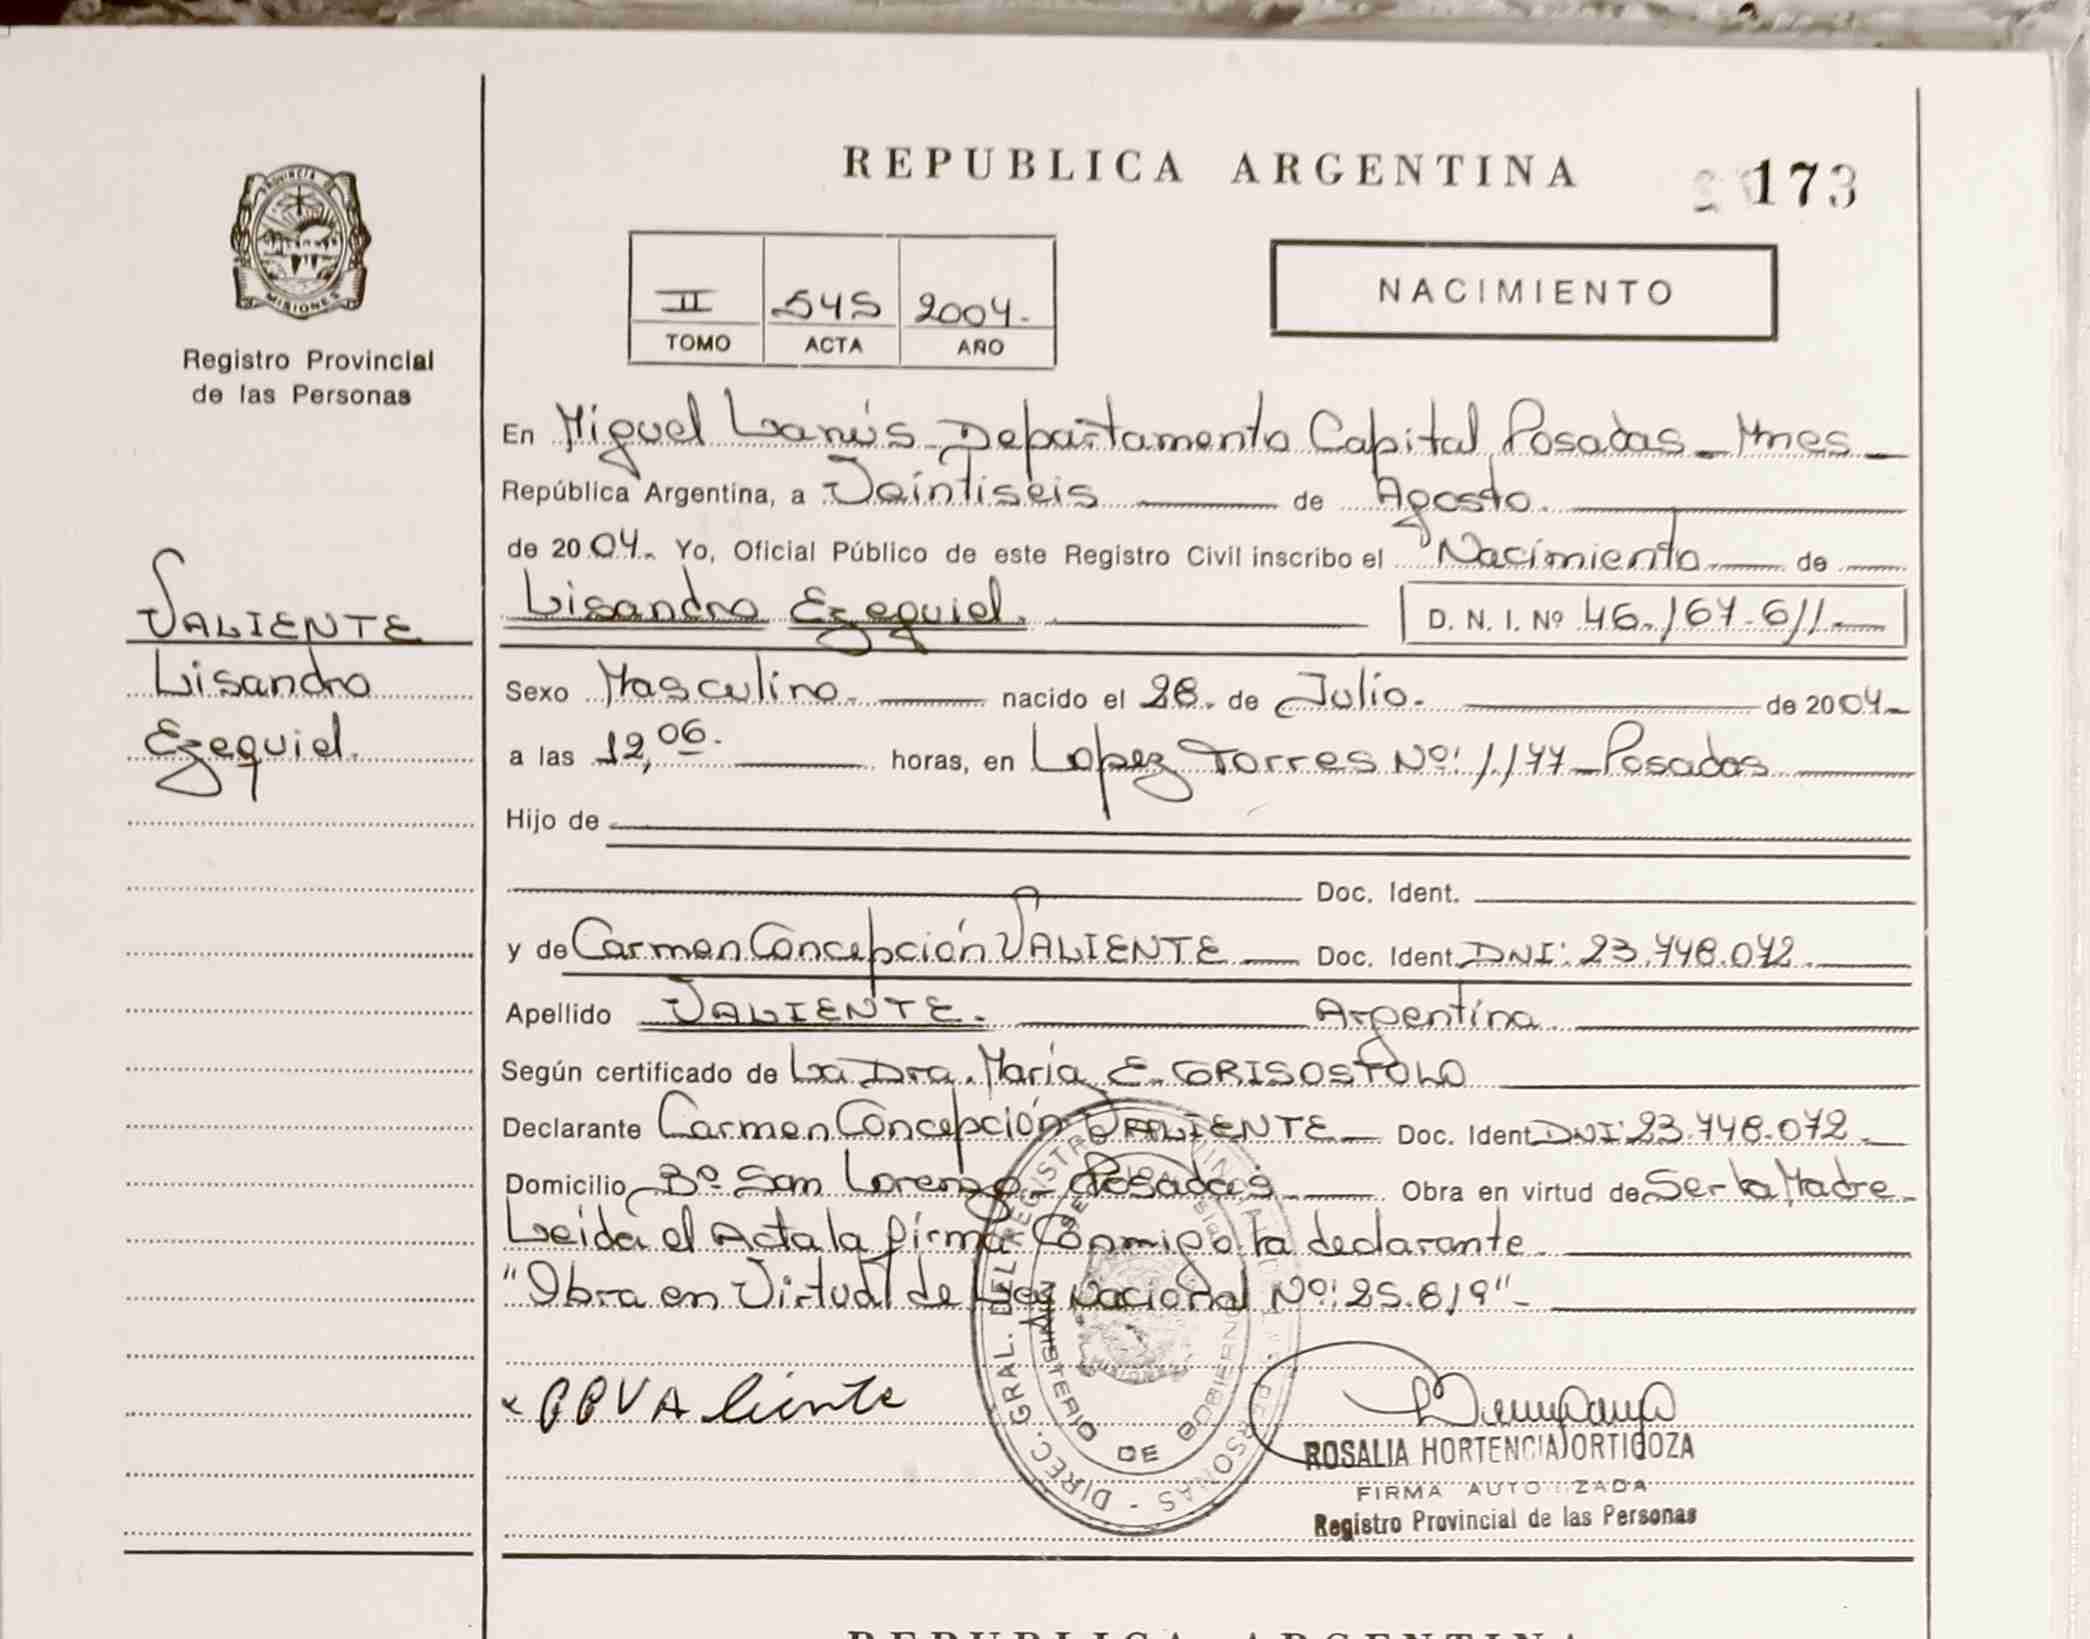 REPUBLICA ARGENTINA
173
PROVINCIA DE
MISIONES
Registro Provincial
de las Personas
II 545 2004.
TOMO ACTA AÑO
NACIMIENTO
VALIENTE
Lisandro
Ezequiel.
En Miguel Lanús Departamento Capital Posadas - Mnes -
República Argentina, a Veintiseis de Agosto.
de 2004. Yo, Oficial Público de este Registro Civil inscribo el Nacimiento de
Lisandro Ezequiel. D. N. I. Nº 46.167.611.
Sexo Masculino. nacido el 28. de Julio. de 2004
a las 12,06. horas, en Lopez Torres Nº: 1177 - Posadas
Hijo de
Doc. Ident.
y de Carmen Concepción VALIENTE Doc. Ident. DNI: 23.748.072.
Apellido VALIENTE. Argentina
Según certificado de La Dra. María E. GRISOSTOLO
Declarante Carmen Concepción VALIENTE Doc. Ident DNI: 23.748.072.
Domicilio Bº San Lorenzo - Posadas Obra en virtud de Ser la Madre
Leida el Acta la firma Conmigo la declarante.
"Obra en Virtud de Ley Nacional Nº: 25.819" -
x CCVAliente
DIREC. GRAL. DEL REGISTRO PROVINCIAL DE PERSONAS -
MINISTERIO DE GOBIERNO
MISIONES
ROSALIA HORTENCIA ORTIGOZA
FIRMA AUTORIZADA
Registro Provincial de las Personas
REPUBLICA ARGENTINA